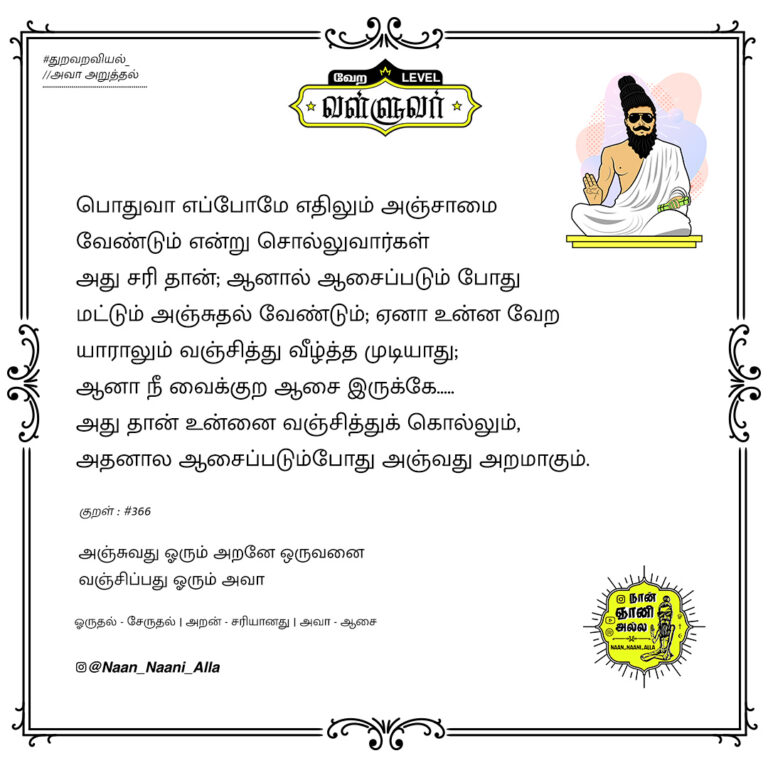 #துறவறவியல்_
//அவா அறுத்தல்
வேற LEVEL
வள்ளுவர்
பொதுவா எப்போமே எதிலும் அஞ்சாமை
வேண்டும் என்று சொல்லுவார்கள்
அது சரி தான்; ஆனால் ஆசைப்படும் போது
மட்டும் அஞ்சுதல் வேண்டும்; ஏனா உன்ன வேற
யாராலும் வஞ்சித்து வீழ்த்த முடியாது;
ஆனா நீ வைக்குற ஆசை இருக்கே.....
அது தான் உன்னை வஞ்சித்துக் கொல்லும்,
அதனால ஆசைப்படும்போது அஞ்வது அறமாகும்.
குறள் : #366
அஞ்சுவது ஓரும் அறனே ஒருவனை
வஞ்சிப்பது ஓரும் அவா
ஓருதல் - சேருதல் | அறன் - சரியானது | அவா - ஆசை
@Naan_Naani_Alla
நான்
ஞானி
அல்ல
NAAN_NAANI_ALLA